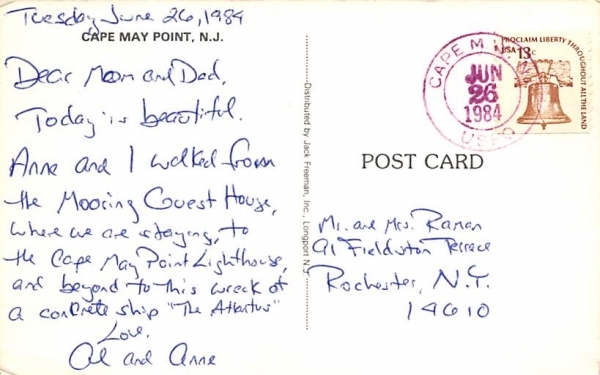 Tuesday June 26, 1984
CAPE MAY POINT, N.J.
Dear Mom and Dad,
Today is beautiful.
Anne and I walked from
the Mooring Guest House,
where we are staying, to
the Cape May Point Lighthouse,
and beyond to this wreck of
a concrete ship "The Atlantus"
Love,
Al and Anne
Distributed by Jack Freeman, Inc., Longport N.J.
CAPE M
JUN
26
1984
USPO
PROCLAIM LIBERTY THROUGHOUT ALL THE LAND
USA 13c
POST CARD
Mr. and Mrs. Raman
91 Fieldston Terrace
Rochester, N.Y.
14610